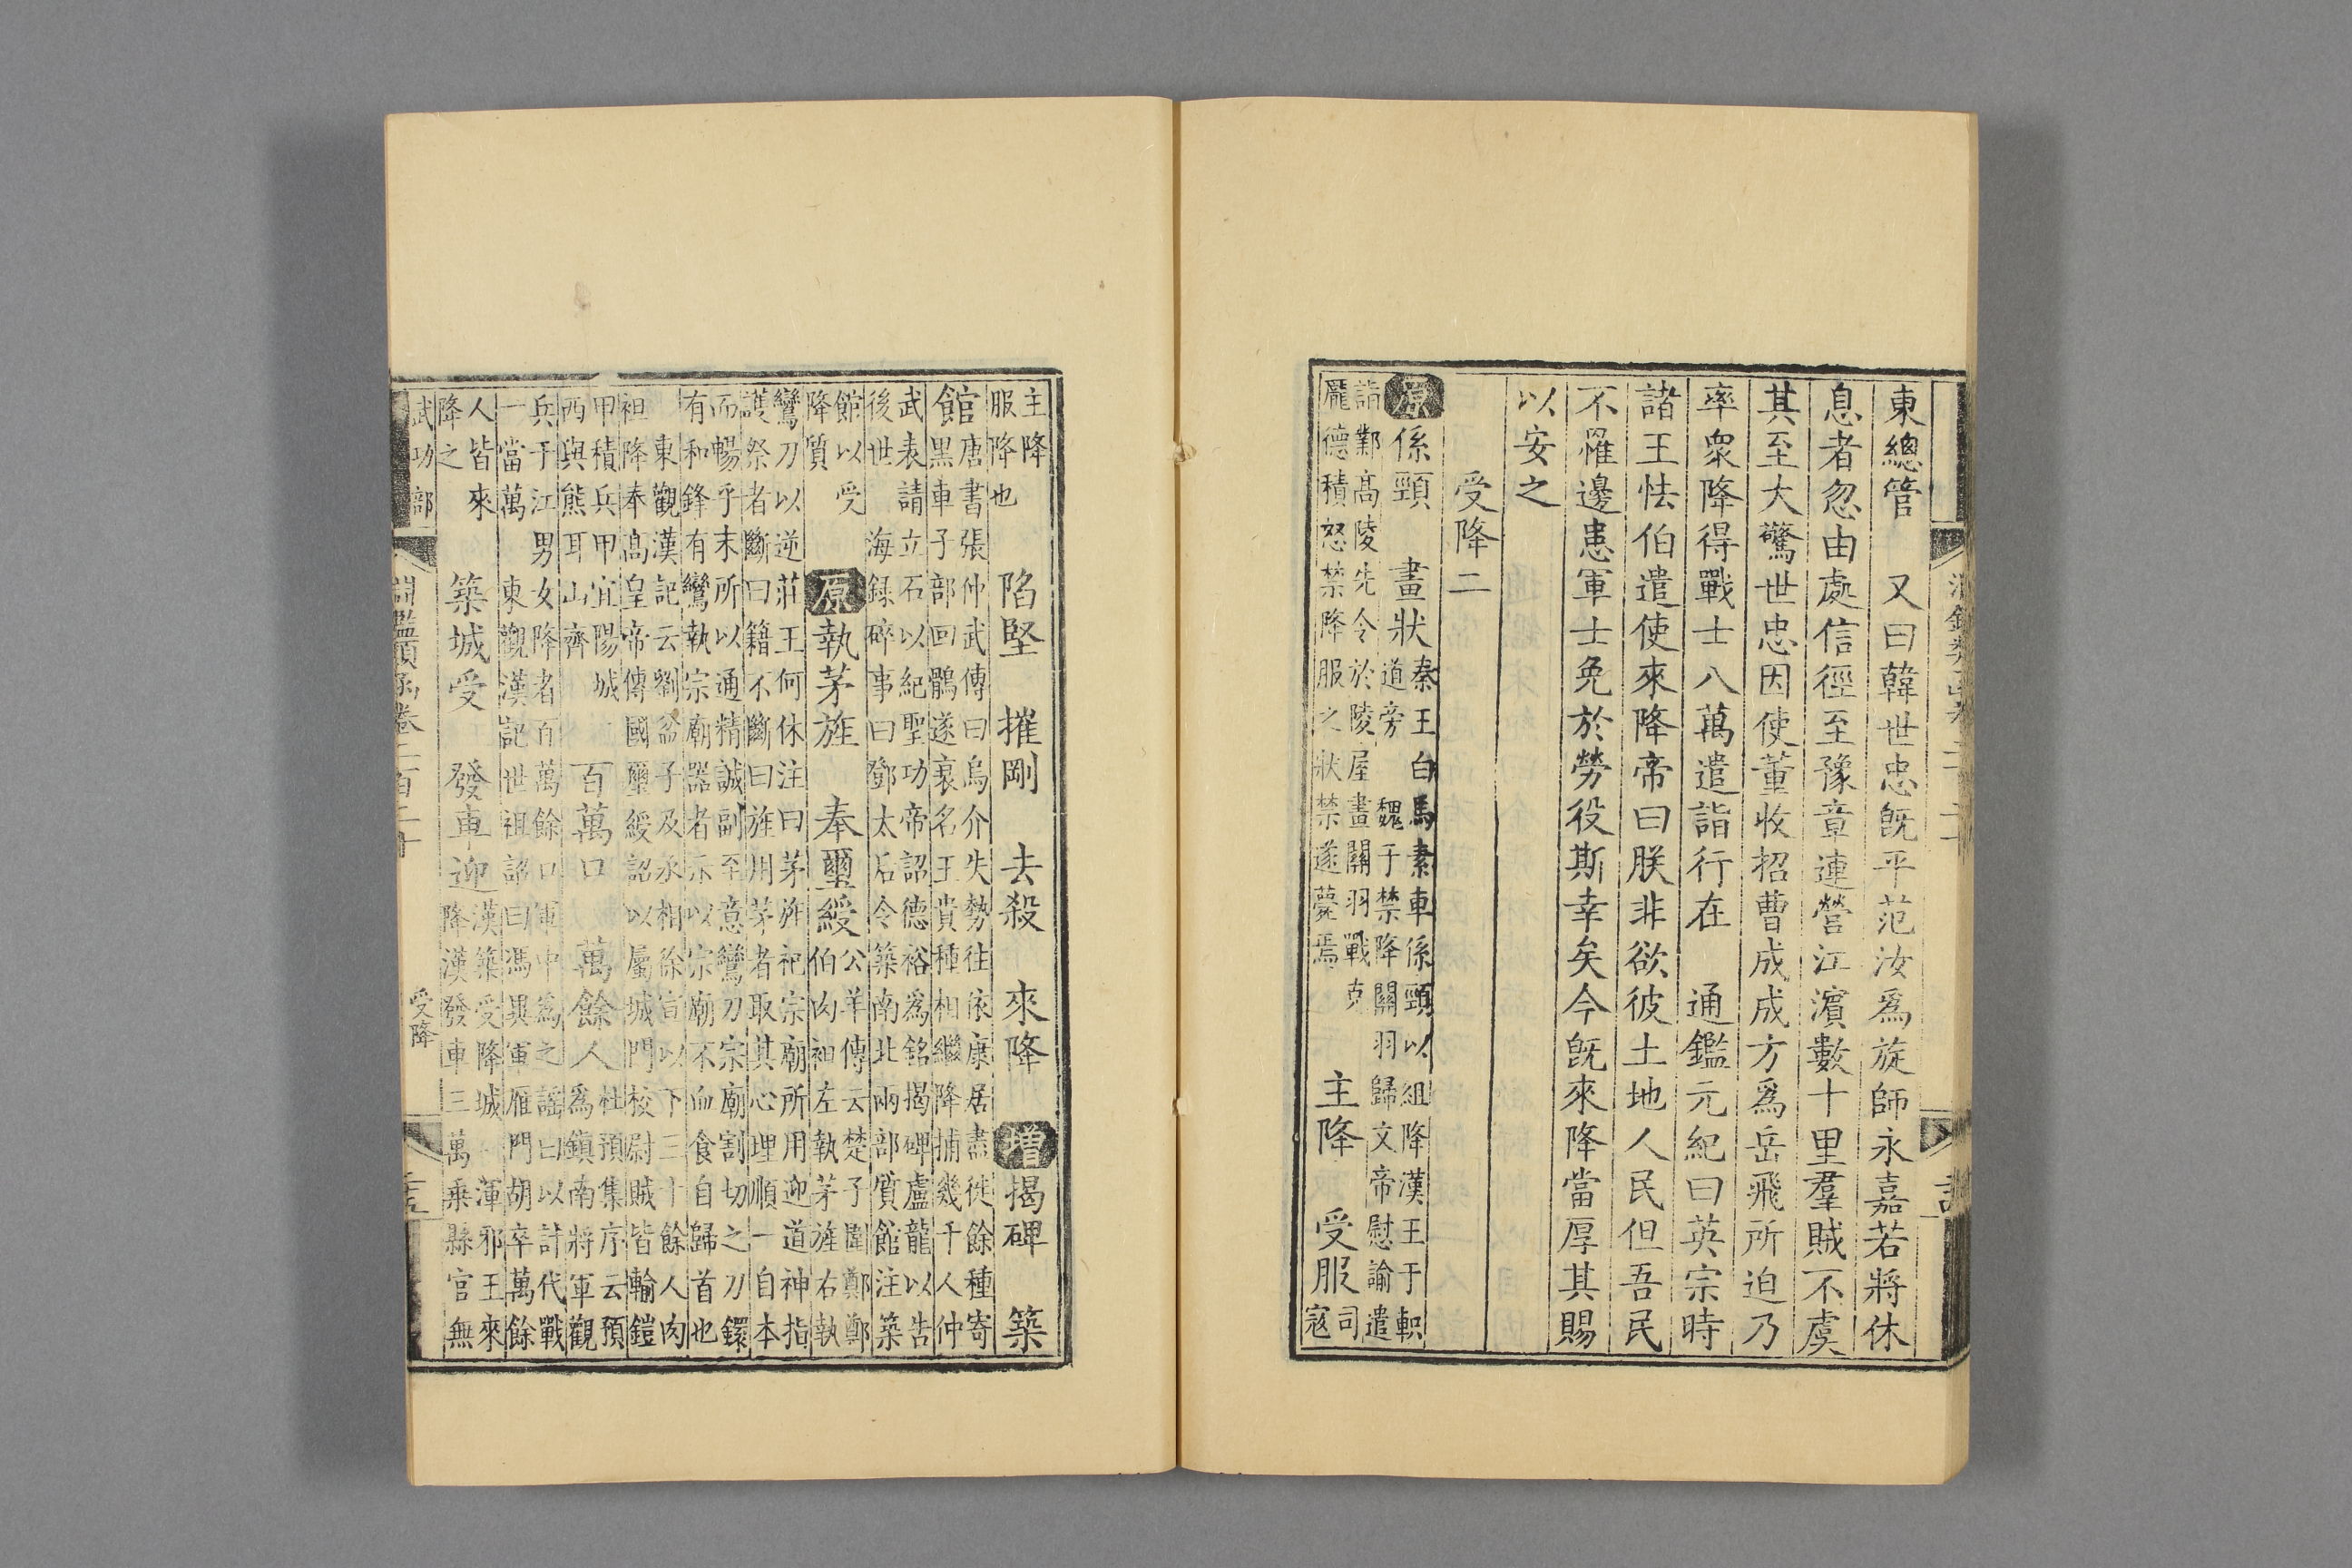 東總管　又曰韓世忠旣平范汝爲旋師永嘉若將休
息者忽由處信徑至豫章連營江濵數十里羣賊不虞
其至大驚世忠因使董收招曹成成方爲岳飛所迫乃
率衆降得戰士八萬遣詣行在　通鑑元紀曰英宗時
諸王怯伯遣使來降帝曰朕非欲彼土地人民但吾民
不罹邊患軍士免於勞役斯幸矣今旣來降當厚其賜
以安之
受降二
原係頸　畫狀
秦王白馬素車係頸以組降漢王于軹
道旁　魏于禁降關羽羽歸文帝慰諭遣
請鄴高陵先令於陵屋畫關羽戰克
龐德積怒禁降服之狀禁遂薨焉
主降　受服
司
寇
主降
服降也
陷堅　摧剛　去殺　來降　增揭碑　築
館
唐書張仲武傳曰烏介失勢往依康居盡徙餘種寄
黑車子部回鶻遂衰名王貴種相繼降捕幾千人仲
武表請立石以紀聖功帝詔德裕爲銘揭碑盧龍以告
後世　海錄碎事曰鄧太后令築南北兩部質館注築
館以受
降質
原執茅旌　奉璽綬
公羊傳云楚子圍鄭鄭
伯肉袒左執茅旌右執
鸞刀以逆莊王何休注曰茅旌祀宗廟所用迎道神指
護祭者斷曰籍不斷曰旌用茅者取其心理順一自本
而暢乎末所以通精誠副至意鸞刀宗廟割切之刀鐶
有和鋒有鸞執宗廟器者示以宗廟不血食自歸首也
東觀漢記云劉盆子及丞相徐宣以下三十餘人肉
袒降奉高皇帝傳國璽綬詔以屬城門校尉賊皆輸鎧
甲積兵甲宜陽城
西與熊耳山齊
百萬口　萬餘人
杜預集序云預
爲鎮南將軍觀
兵于江男女降者百萬餘口軍中爲之謠曰以計代戰
一當萬　東觀漢記世祖詔曰馮異軍雁門胡卒萬餘
人皆來
降之
築城受　發車迎
漢築受降城　渾邪王來
降漢發車三萬乘縣官無
武功部
淵鑑類函卷二百二十
受降